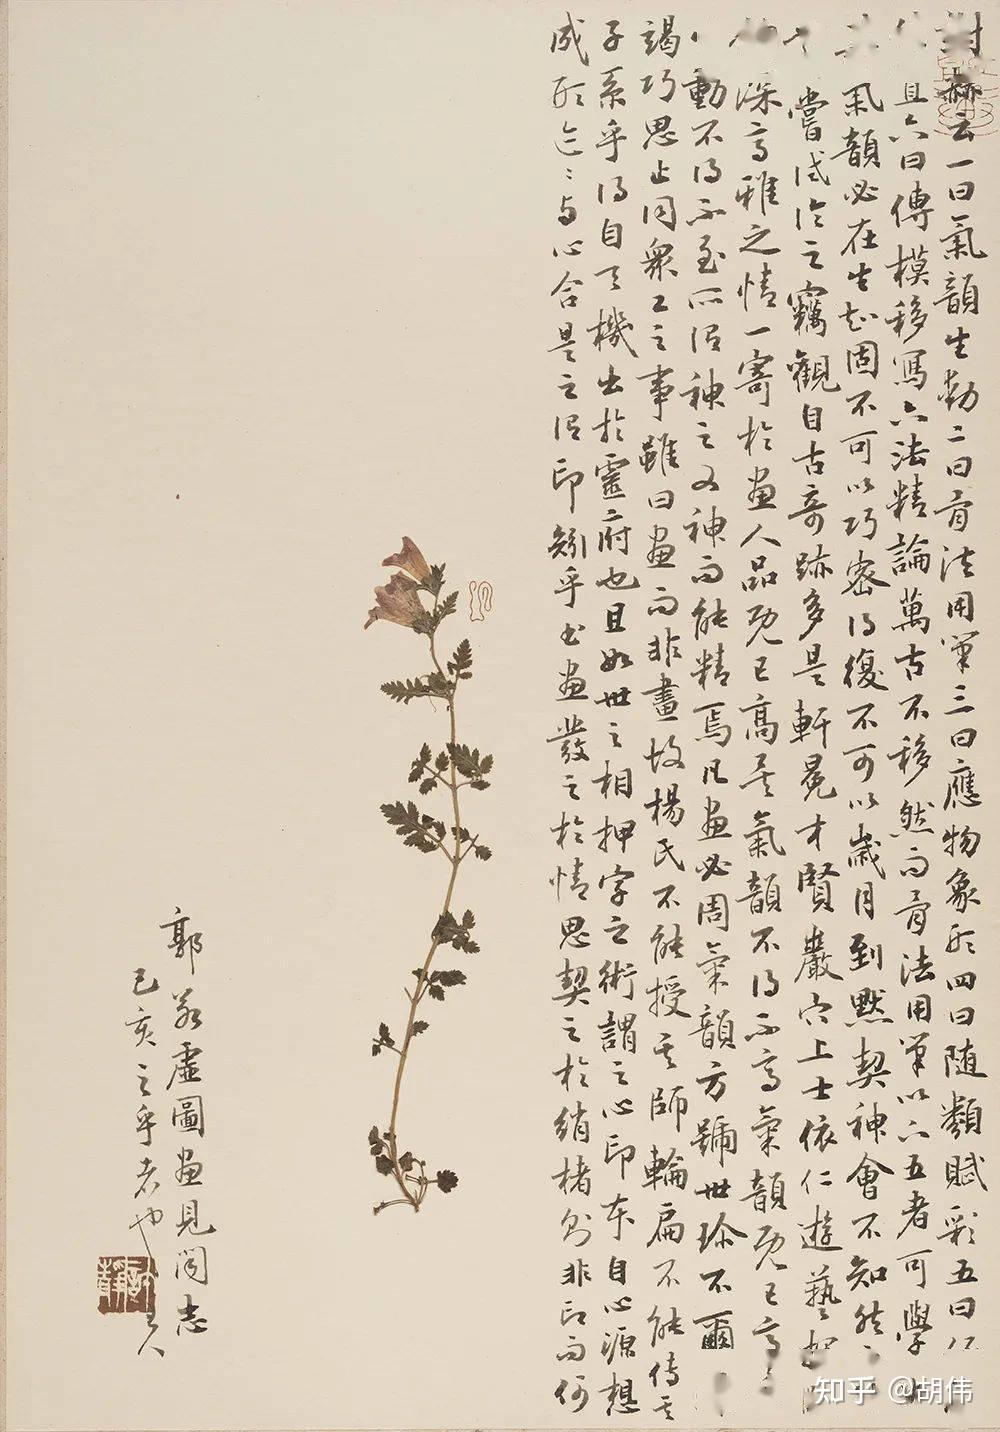 赫云一曰氣韻生動二曰骨法用筆三曰應物象形四曰隨類賦彩五曰
且六曰傳模移寫六法精論萬古不移然而骨法用筆以下五者可學
氣韻必在生知固不可以巧密得復不可以歲月到默契神會不知然
嘗試論之竊觀自古奇跡多是軒冕才賢巖穴上士依仁遊藝
深高雅之情一寄於畫人品既已高矣氣韻不得不高氣韻既已高
動不得不至所謂神之又神而能精焉凡畫必周氣韻方號世珍不爾
竭巧思止同眾工之事雖曰畫而非畫故楊氏不能授其師輪扁不能傳其
子系乎得自天機出於靈府也且如世之相押字之術謂之心印本自心源想
成形迹〻與心合是之謂印矧乎書畫發之於情思契之於綃楮則非印而何
郭若虛圖畫見聞志
己亥之乎者也
知乎 @胡伟